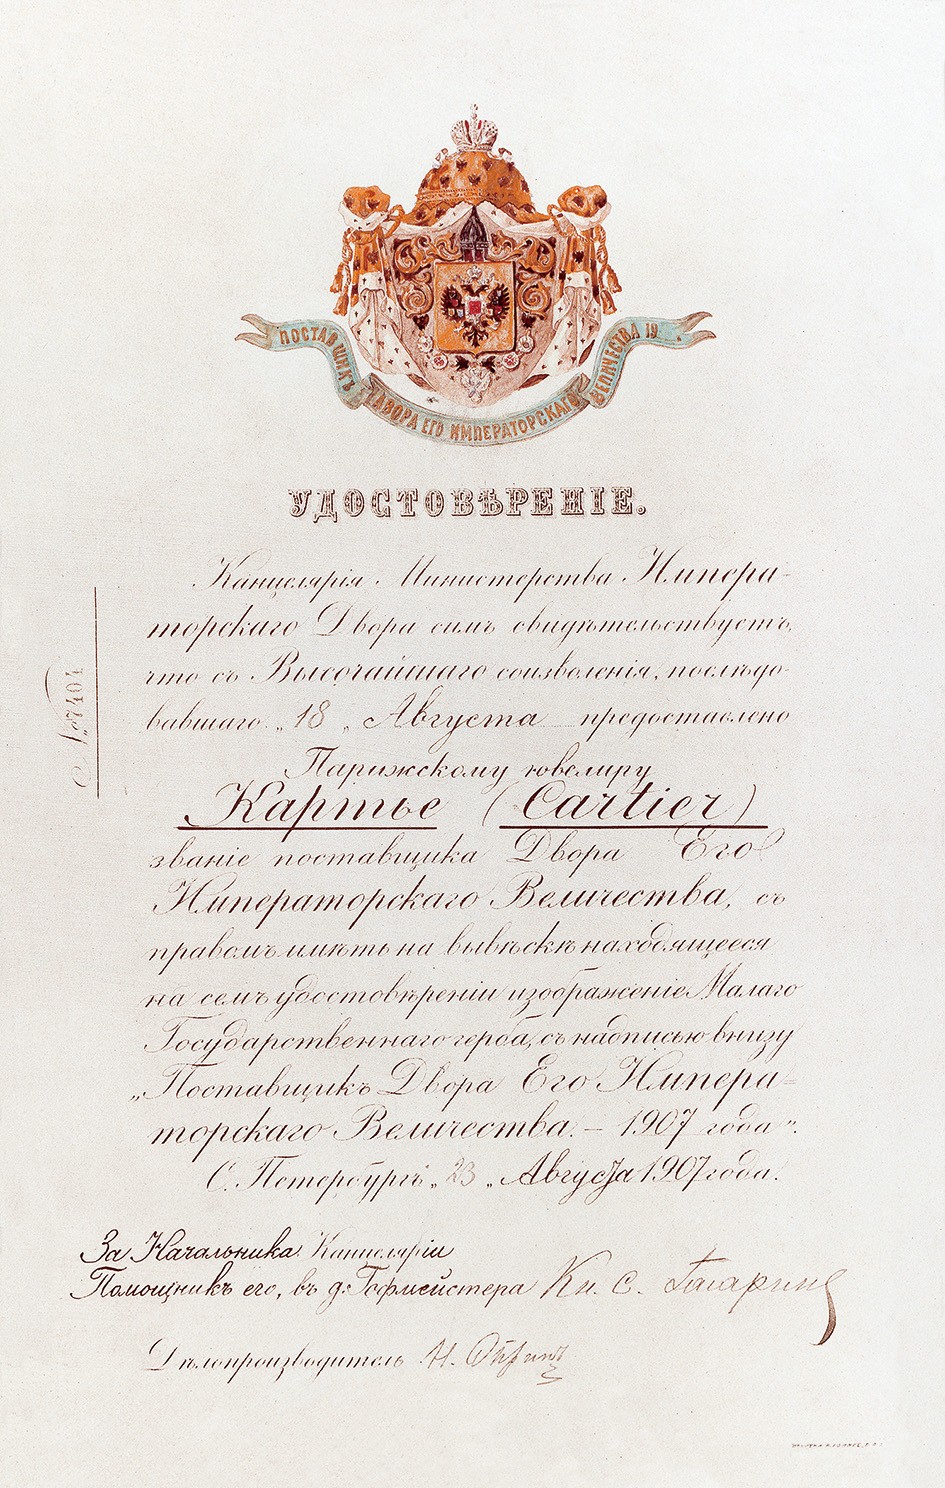 ПОСТАВЩИКЪ ДВОРА ЕГО ИМПЕРАТОРСКАГО ВЕЛИЧЕСТВА 19
УДОСТОВѢРЕНІЕ.
Канцелярія Министерства Импера-
торскаго Двора симъ свидѣтельствуетъ,
что съ Высочайшаго соизволенія, послѣдо-
вавшаго „18„ Августа предоставлено
Парижскому ювелиру
Картье (Cartier)
званіе поставщика Двора Его
Императорскаго Величества, съ
правомъ имѣть на вывѣскѣ находящееся
на семъ удостовѣреніи изображеніе Малаго
Государственнаго герба, съ надписью внизу
„Поставщикъ Двора Его Импера-
торскаго Величества. – 1907 года“.
С. Петербургъ „23„ Августа 1907 года.
За Начальника Канцеляріи
Помощникъ его, въ д. Гофмейстера Кн. С. Гагаринъ
Дѣлопроизводитель Н.
№ 7404